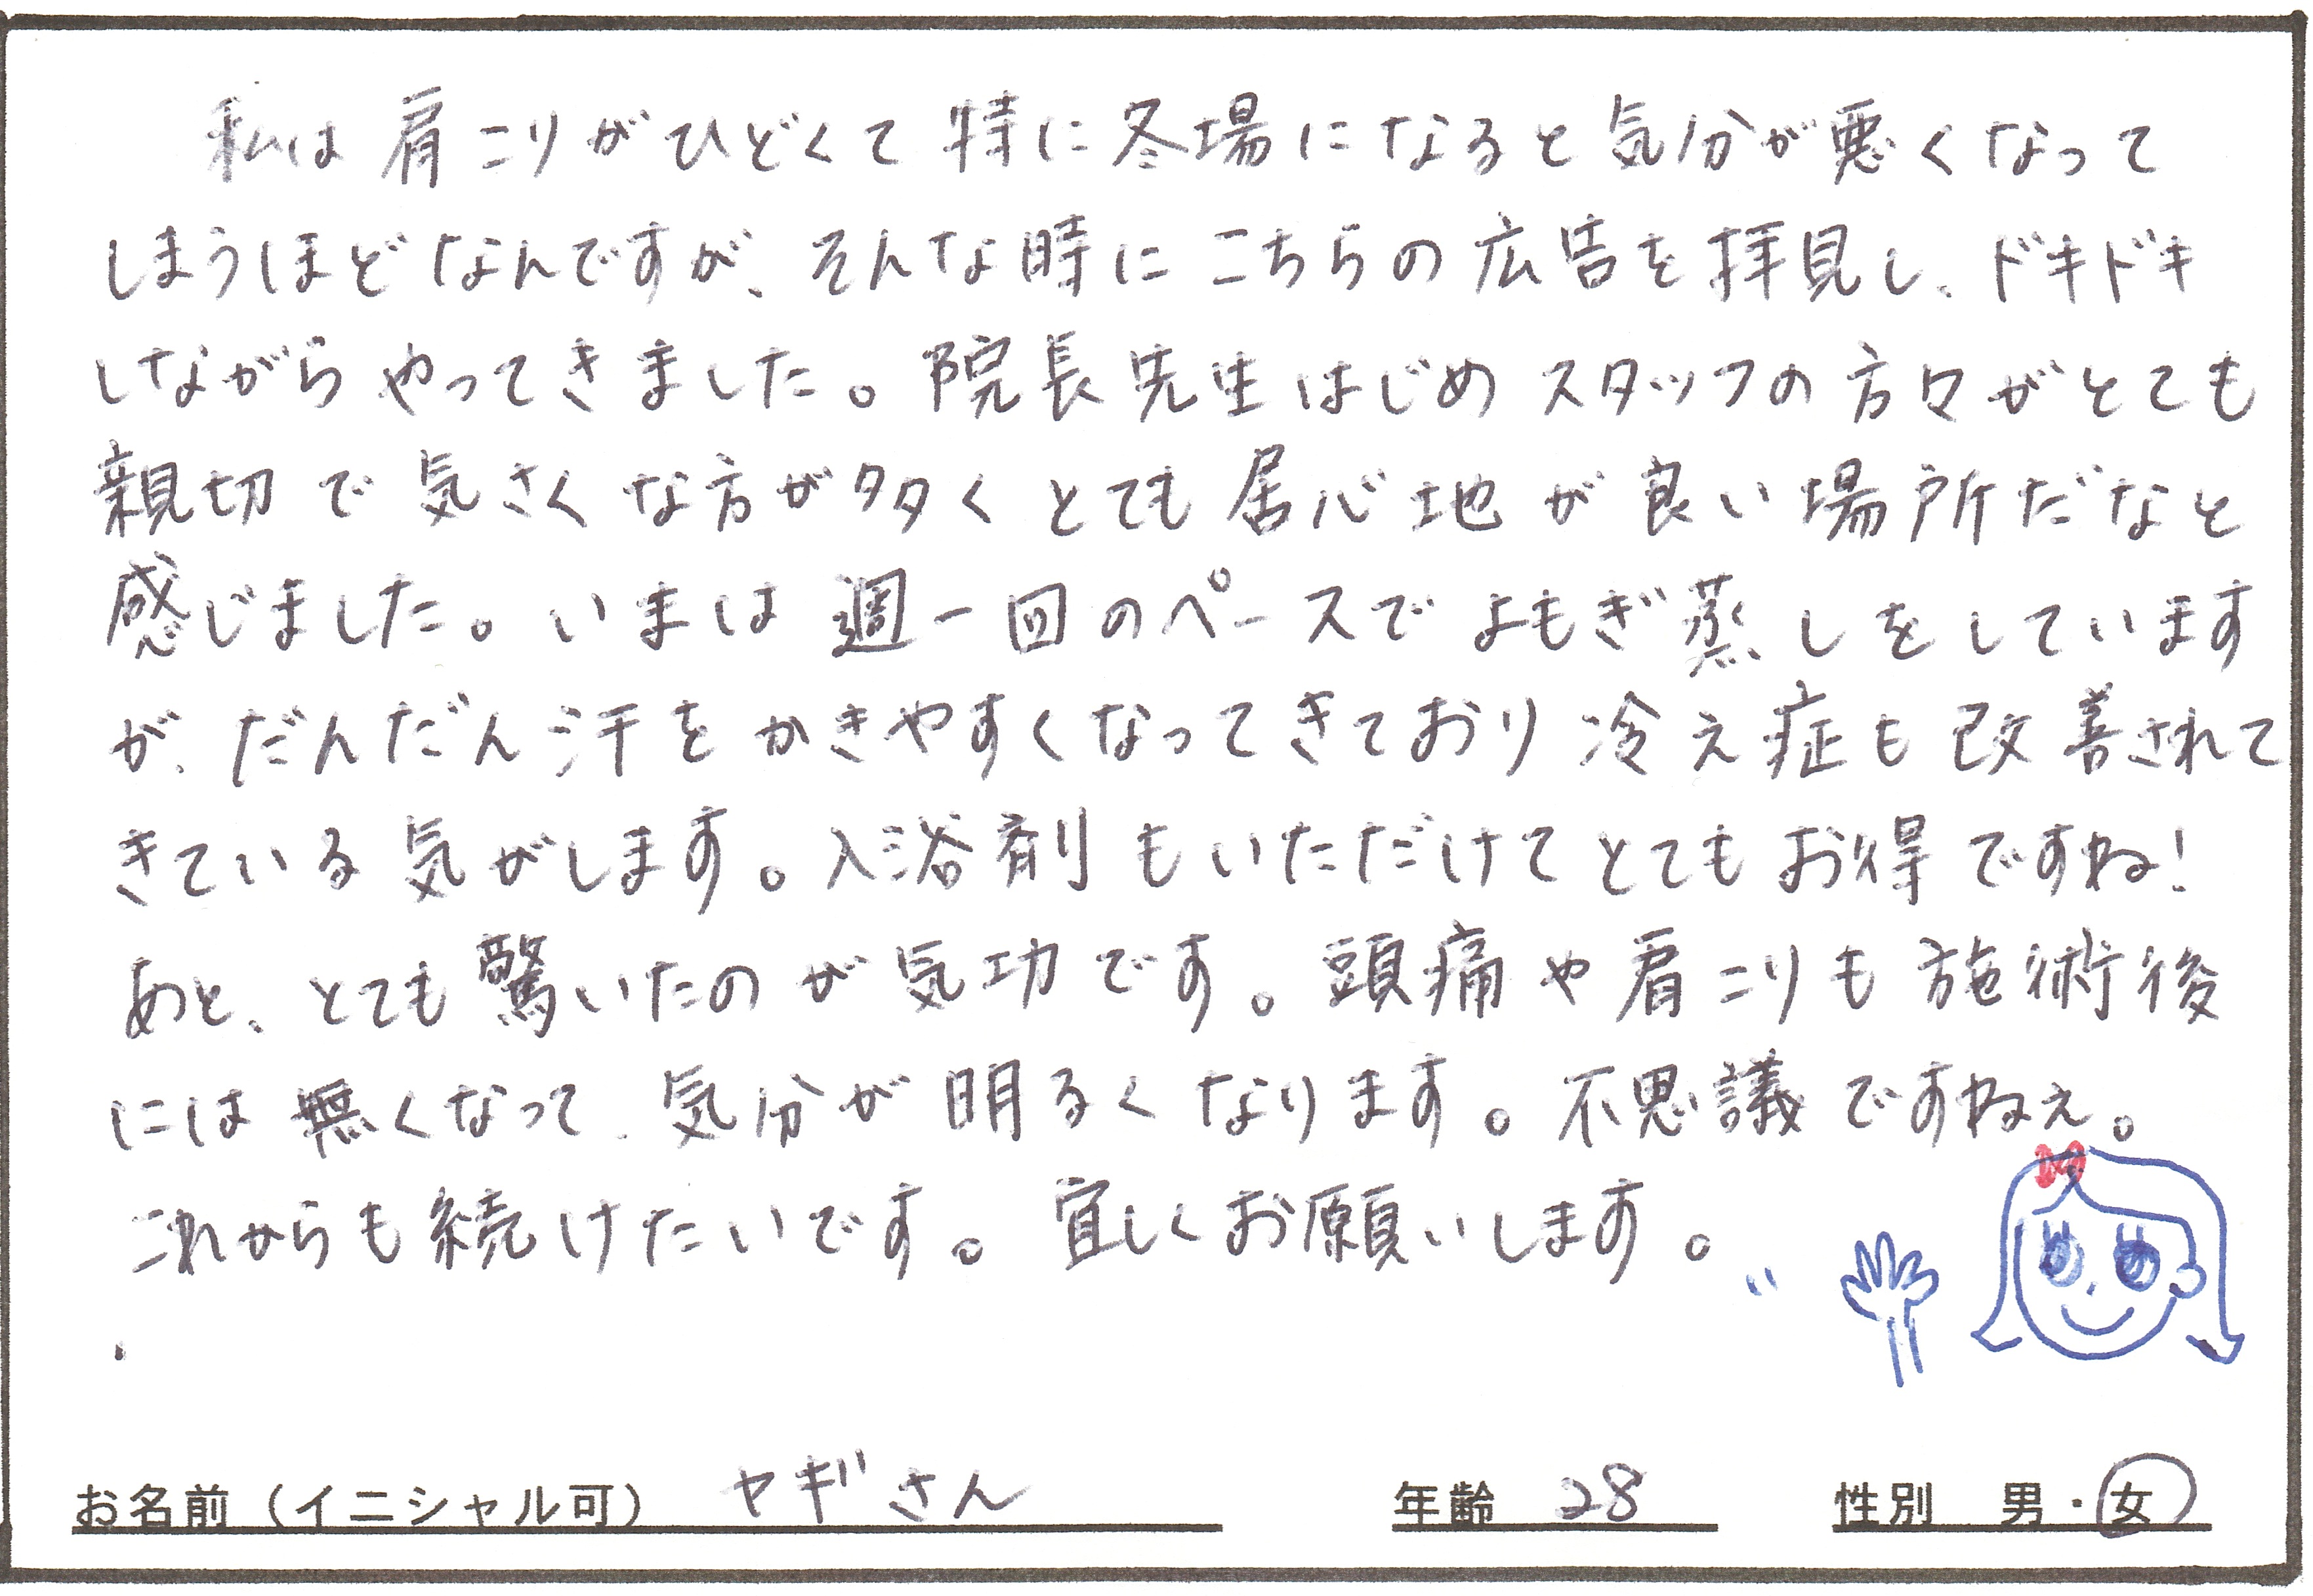 私は肩こりがひどくて特に冬場になると気分が悪くなって
しまうほどなんですが、そんな時にこちらの広告を拝見し、ドキドキ
しながらやってきました。院長先生はじめスタッフの方々がとても
親切で気さくな方が多くとても居心地が良い場所だなと
感じました。いまは週一回のペースでよもぎ蒸しをしています
が、だんだん汗をかきやすくなってきており冷え症も改善されて
きている気がします。入浴剤もいただけてとてもお得ですね!
あと、とても驚いたのが気功です。頭痛や肩こりも施術後
には無くなって、気分が明るくなります。不思議ですねぇ。
これからも続けたいです。宜しくお願いします。
お名前（イニシャル可） ヤギさん 年齢 28 性別 男・女